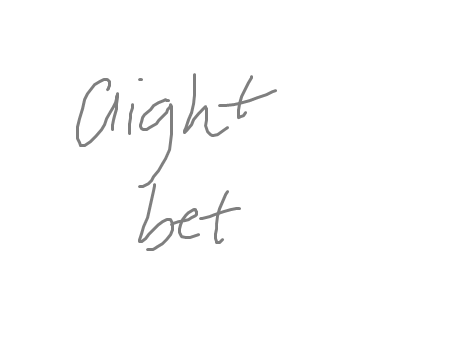 aight
bet